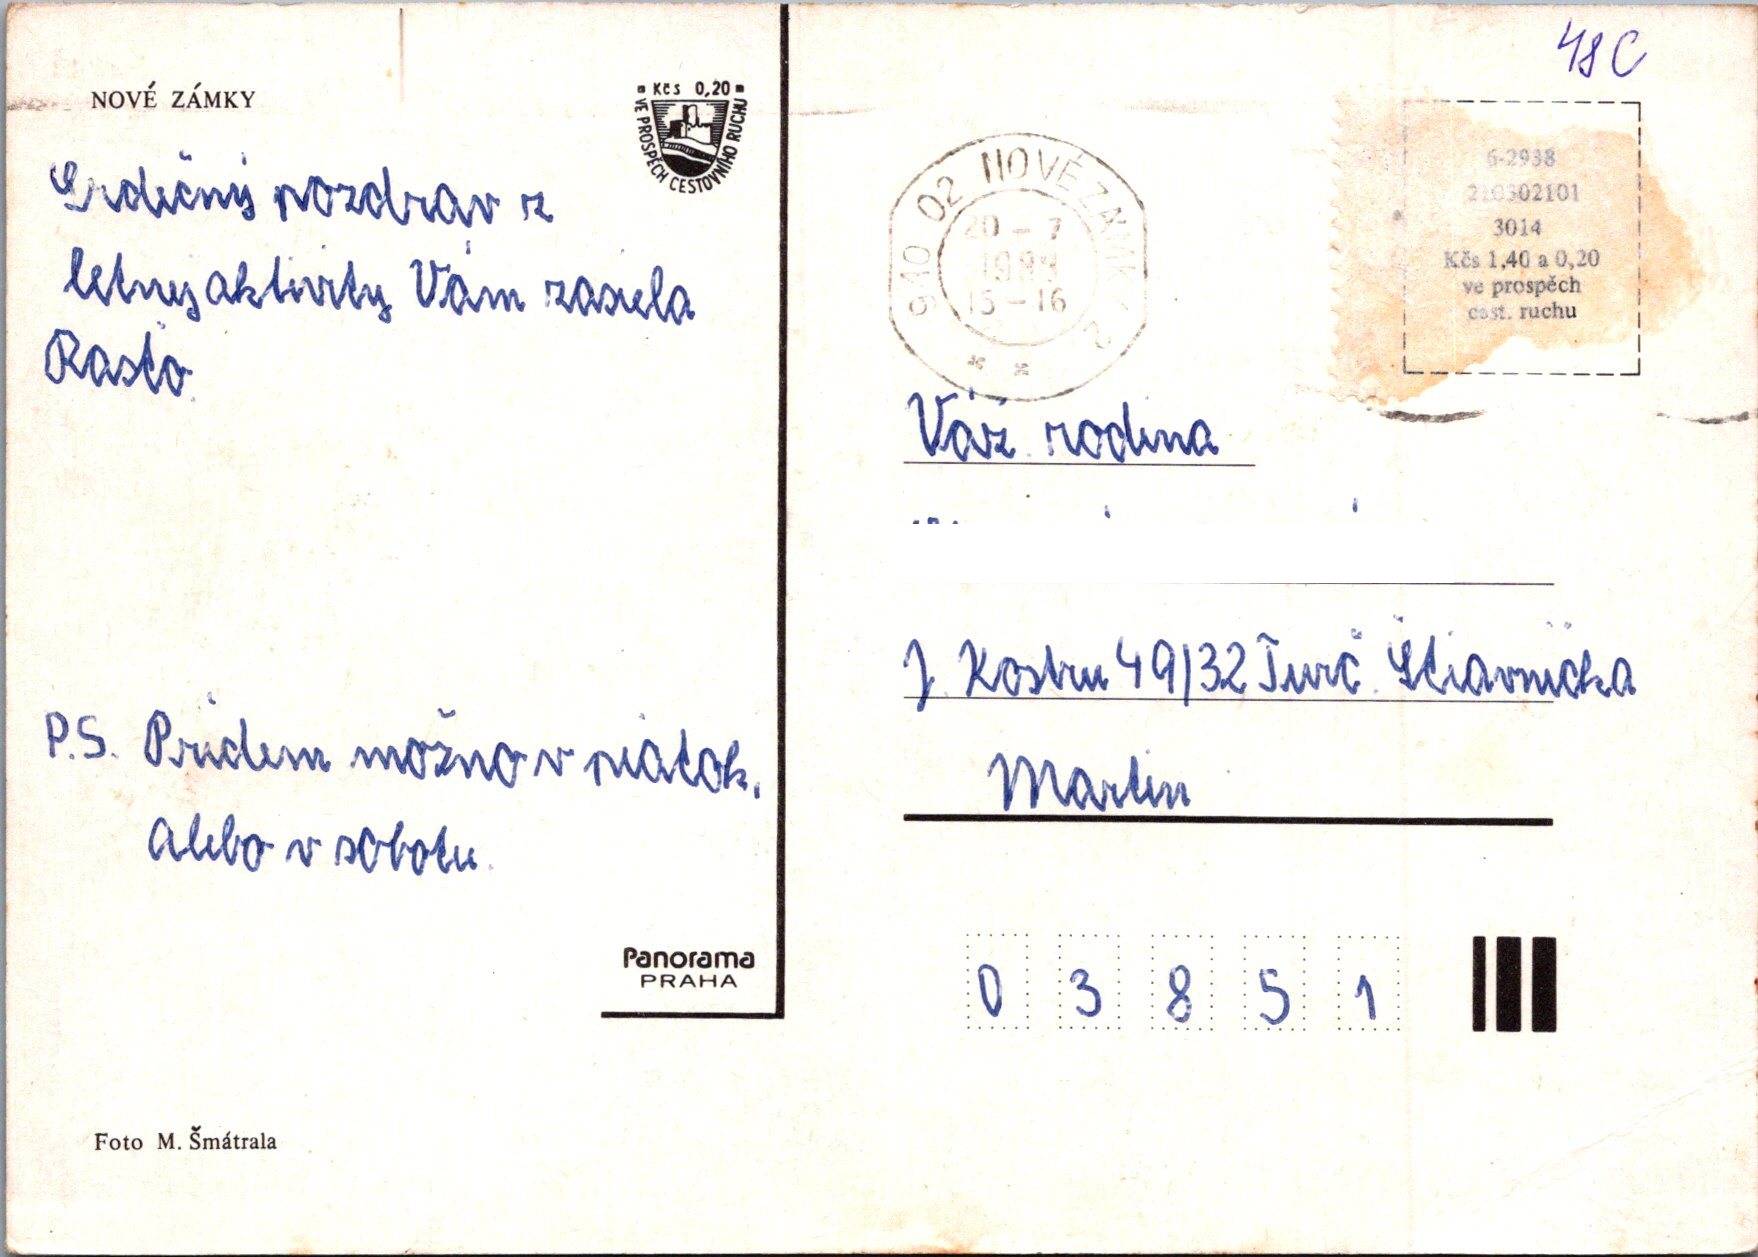 NOVÉ ZÁMKY
Kčs 0,20
VE PROSPĚCH CESTOVNÍHO RUCHU
Srdečný pozdrav z
letnej aktivity Vám zasiela
Rasťo
P.S. Prídem možno v piatok,
alebo v sobotu.
Panorama
PRAHA
Foto M. Šmátrala
48 C
6-2938
210302101
3014
Kčs 1,40 a 0,20
ve prospěch
cest. ruchu
940 02 NOVÉ ZÁMKY 2
20 - 7
15-16
Váž. rodina
J. Kostru 49/32 Turč. Štiavnička
Martin
03851